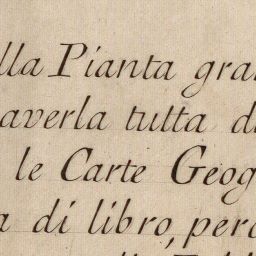 lla Pianta gra
averla tutta d
le Carte Geog
a di libro, perc